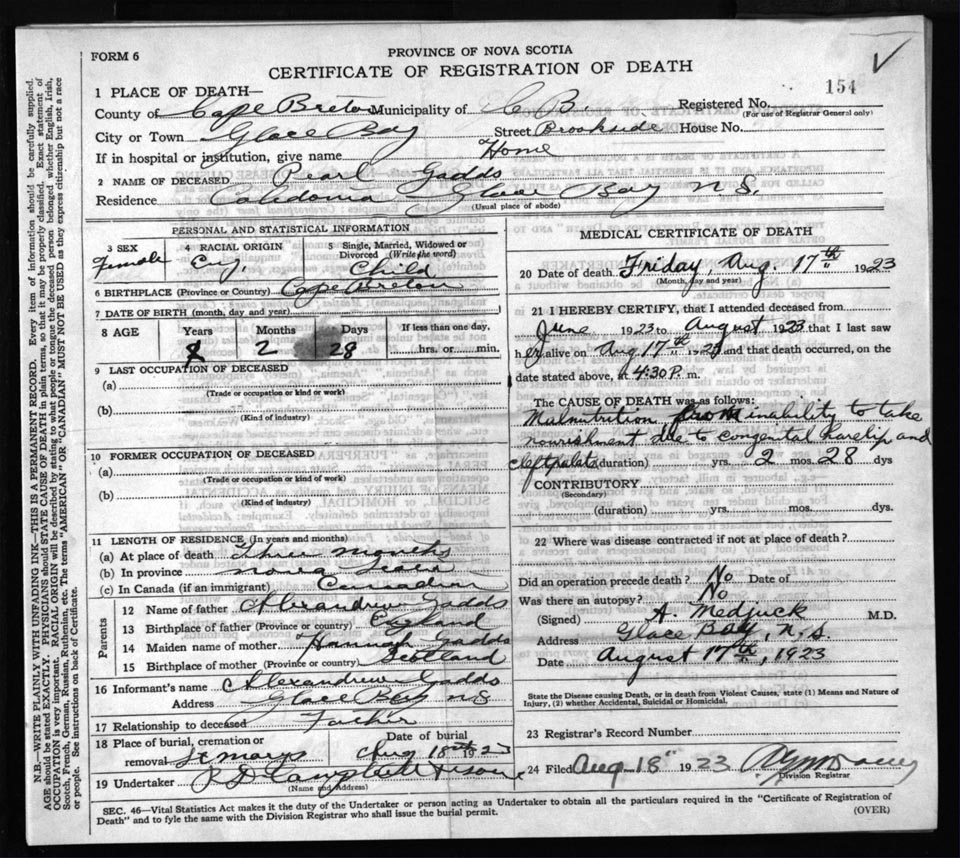 FORM 6
PROVINCE OF NOVA SCOTIA
CERTIFICATE OF REGISTRATION OF DEATH
154
1 PLACE OF DEATH—
County of Cape Breton Municipality of C B. Registered No.
(For use of Registrar General only)
City or Town Glace Bay Street Brookside House No.
If in hospital or institution, give name Home
2 NAME OF DECEASED Pearl Gadds
Residence Caledonia Glace Bay N S.
(Usual place of abode)
PERSONAL AND STATISTICAL INFORMATION
3 SEX 4 RACIAL ORIGIN 5 Single, Married, Widowed or Divorced (Write the word)
Female Eng. Child
6 BIRTHPLACE (Province or Country) Cape Breton
7 DATE OF BIRTH (month, day and year)
8 AGE Years Months Days If less than one day,
2 28 hrs. or min.
9 LAST OCCUPATION OF DECEASED
(a)
(Trade or occupation or kind or work)
(b)
(Kind of industry)
10 FORMER OCCUPATION OF DECEASED
(a)
(Trade or occupation or kind of work)
(b)
(Kind of industry)
11 LENGTH OF RESIDENCE (In years and months)
(a) At place of death Three Months
(b) In province Nova Scotia
(c) In Canada (if an immigrant) Canadian
Parents
12 Name of father Alexandrew Gadds
13 Birthplace of father (Province or country) England
14 Maiden name of mother Hannah Gadds
15 Birthplace of mother (Province or country) Scotland
16 Informant's name Alexandrew Gadds
Address Glace Bay N S
17 Relationship to deceased Father
18 Place of burial, cremation or removal St Marys Date of burial Aug 18th 1923
19 Undertaker
(Name and Address)
MEDICAL CERTIFICATE OF DEATH
20 Date of death Friday, Aug. 17th 1923
(Month, day and year)
21 I HEREBY CERTIFY, that I attended deceased from
June 1923 to August 1923 that I last saw
her alive on Aug. 17th 1923 and that death occurred, on the
date stated above, at 4:30 P. m.
The CAUSE OF DEATH was as follows:
Malnutrition from inability to take
nourishment due to congenital harelip and
cleft palate (duration) yrs. 2 mos. 28 dys
CONTRIBUTORY
(Secondary)
(duration) yrs. mos. dys.
22 Where was disease contracted if not at place of death?
Did an operation precede death? No Date of
Was there an autopsy? No
(Signed) A. Medjuck M.D.
Address Glace Bay, N.S.
Date August 17th, 1923
State the Disease causing Death, or in death from Violent Causes, state (1) Means and Nature of
Injury, (2) whether Accidental, Suicidal or Homicidal.
23 Registrar's Record Number
24 Filed Aug 18 1923
Division Registrar
SEC. 46—Vital Statistics Act makes it the duty of the Undertaker or person acting as Undertaker to obtain all the particulars required in the "Certificate of Registration of
Death" and to fyle the same with the Division Registrar who shall issue the burial permit.
(OVER)
N.B.—WRITE PLAINLY WITH UNFADING INK—THIS IS A PERMANENT RECORD. Every item of Information should be carefully supplied.
AGE should be stated EXACTLY. PHYSICIANS should STATE CAUSE OF DEATH in plain terms, so that it may be properly classified. Exact statement of
OCCUPATION is very important. RACIAL ORIGIN will be described by stating to what people or tongue the deceased person belonged whether English, Irish,
Scotch, French, German, Russian, Ruthenian, etc. The terms "AMERICAN" OR "CANADIAN" MUST NOT BE USED as they express citizenship but not a race
or people. See instructions on back of Certificate.